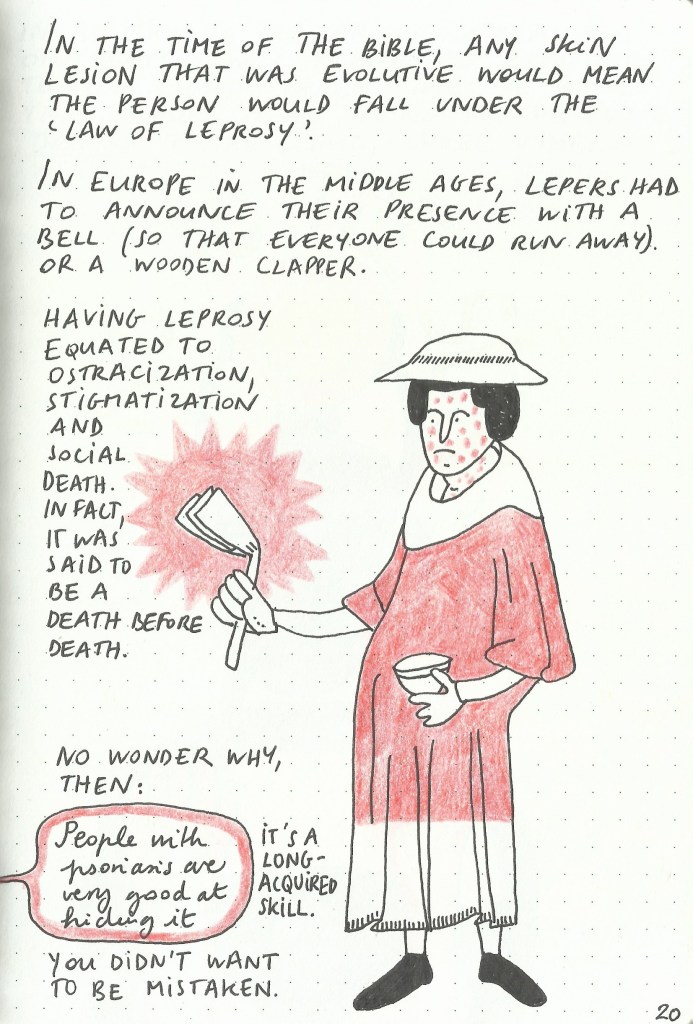 IN THE TIME OF THE BIBLE, ANY SKIN
LESION THAT WAS EVOLUTIVE WOULD MEAN
THE PERSON WOULD FALL UNDER THE
'LAW OF LEPROSY'.
IN EUROPE IN THE MIDDLE AGES, LEPERS HAD
TO ANNOUNCE THEIR PRESENCE WITH A
BELL (SO THAT EVERYONE COULD RUN AWAY).
OR A WOODEN CLAPPER.
HAVING LEPROSY
EQUATED TO
OSTRACIZATION,
STIGMATIZATION
AND
SOCIAL
DEATH.
IN FACT,
IT WAS
SAID TO
BE A
DEATH BEFORE
DEATH.
NO WONDER WHY,
THEN:
People with
psoriasis are
very good at
hiding it
IT'S A
LONG-
ACQUIRED
SKILL.
YOU DIDN'T WANT
TO BE MISTAKEN.
20